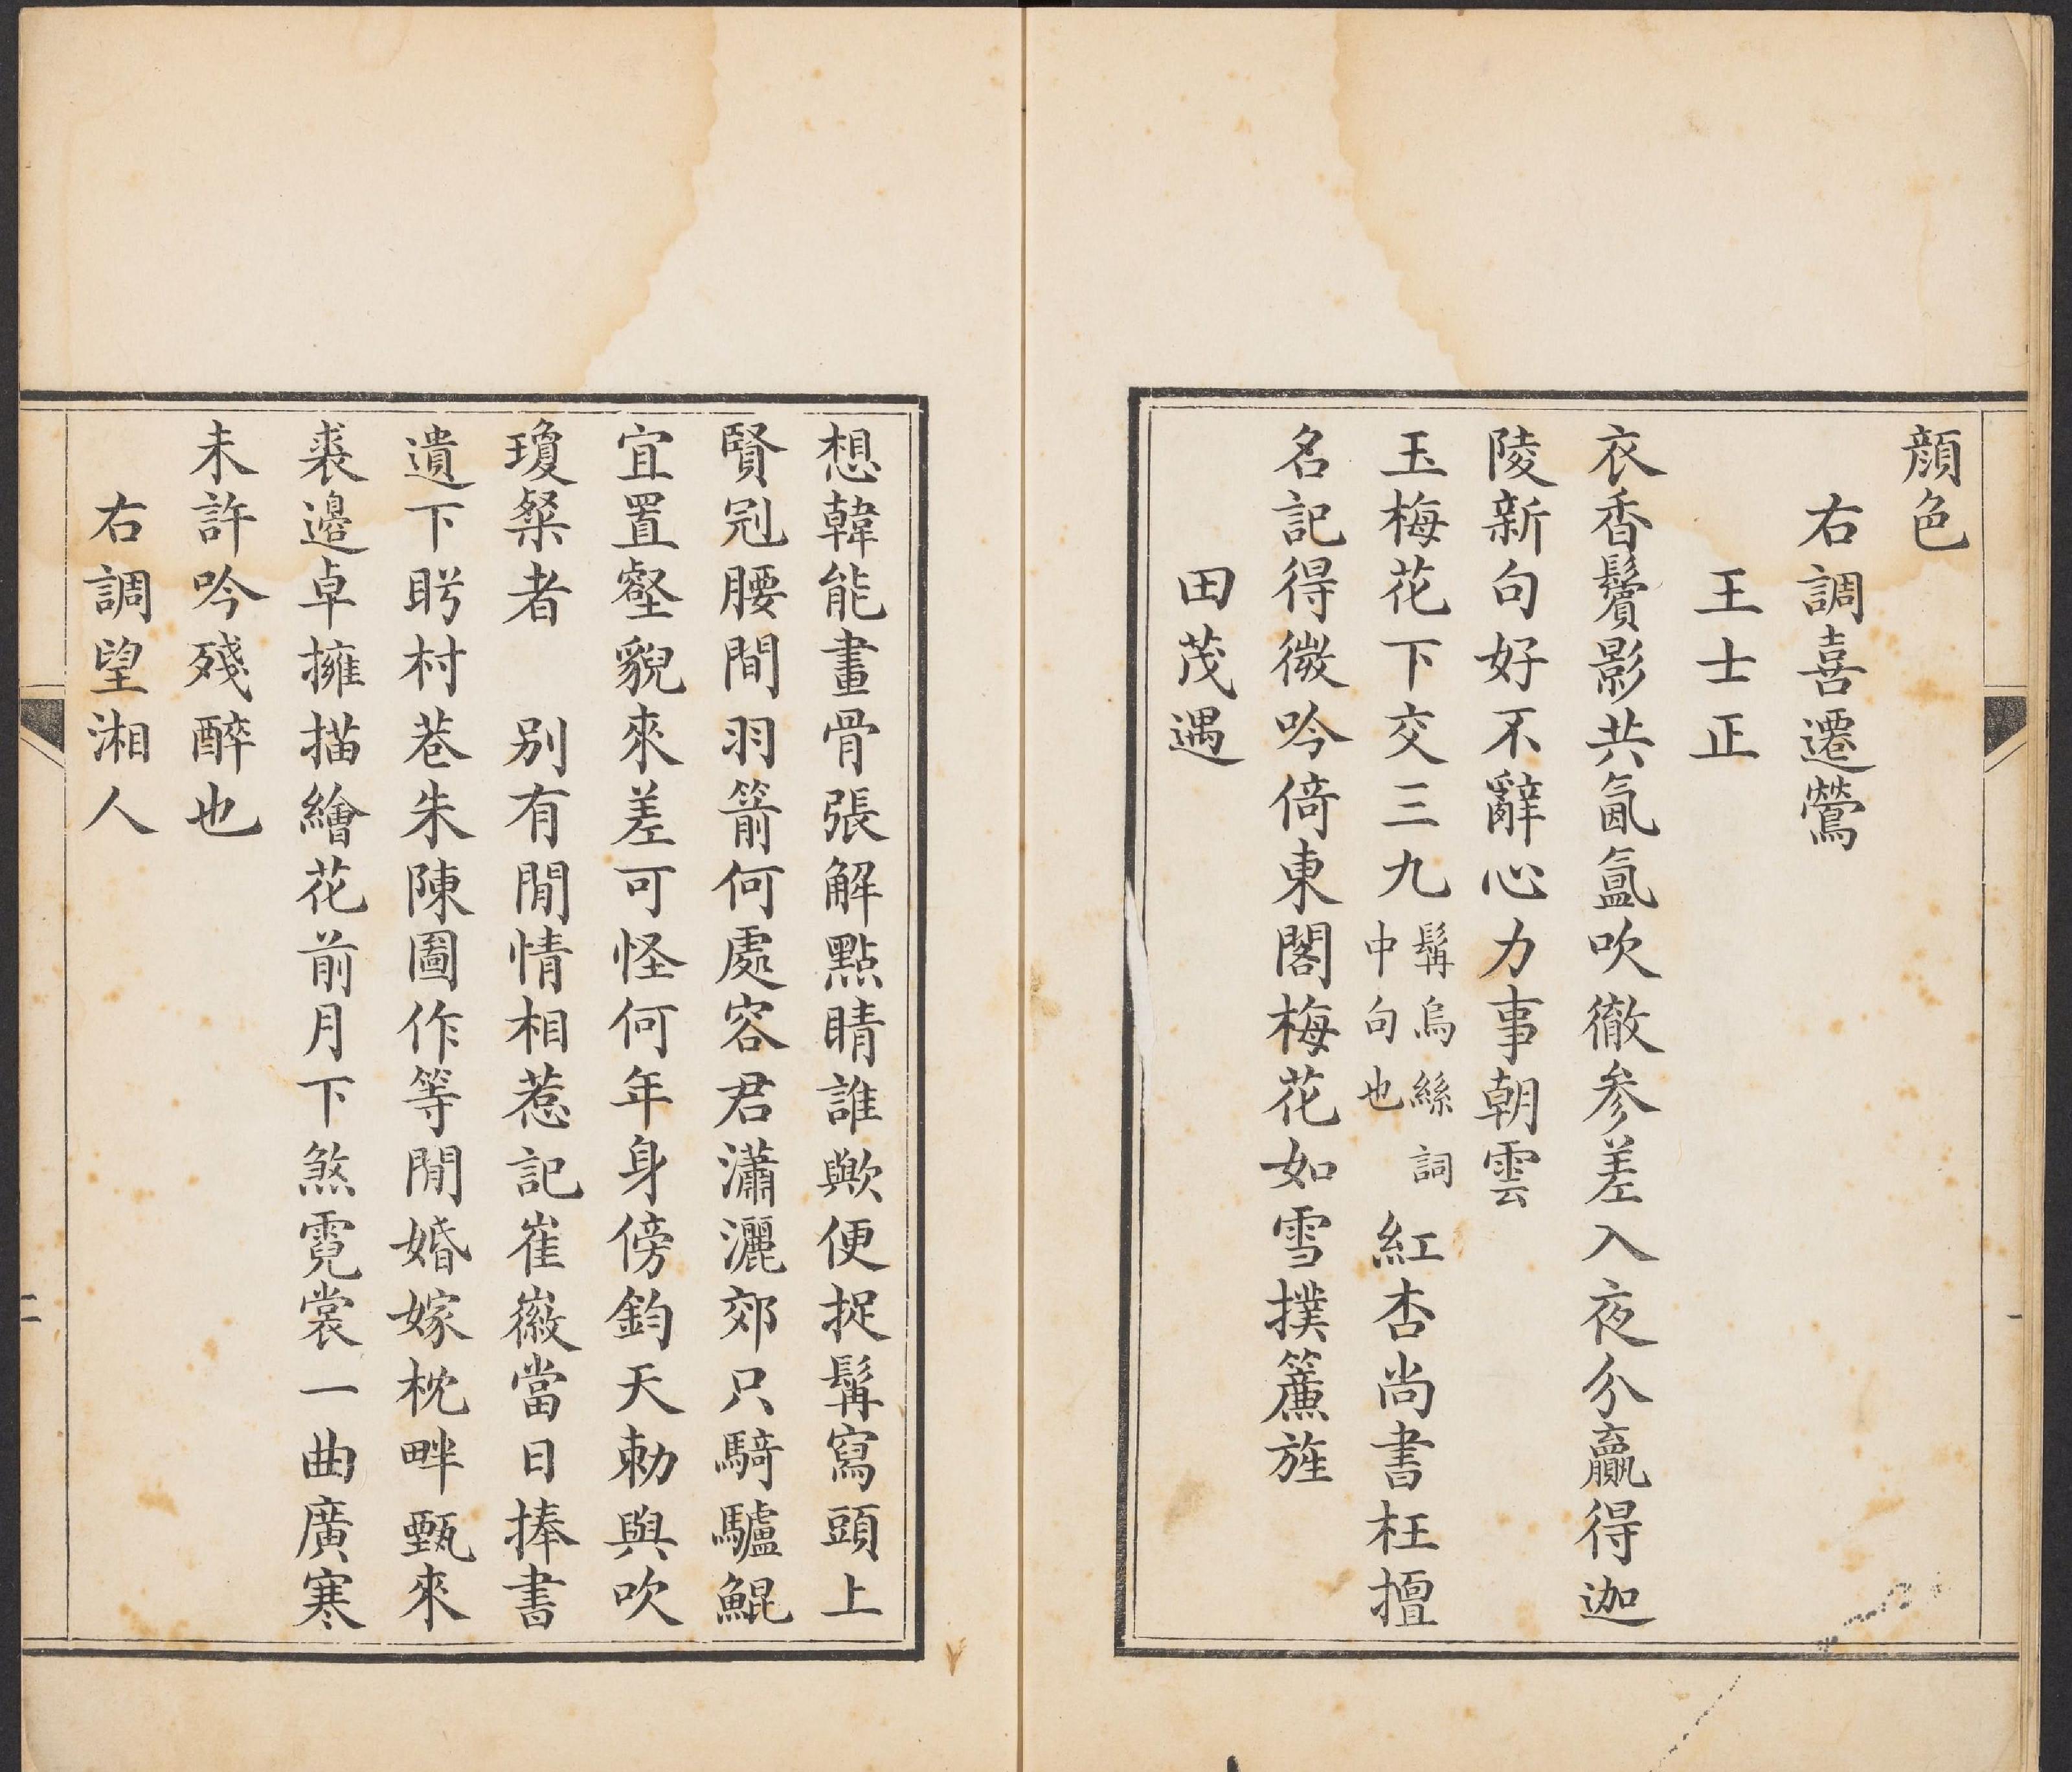 顔色
右調喜遷鶯
王士正
衣香鬢影共氤氳吹徹參差入夜分贏得迦
陵新句好不辭心力事朝雲
玉梅花下交三九髯烏絲詞中句也紅杏尚書枉擅
名記得微吟倚東閣梅花如雪撲簾旌
田茂遇
想韓能畫骨張解點睛誰歟便捉髯寫頭上
賢冠腰間羽箭何處容君瀟灑郊只騎驢鯤
宜置壑貌來差可怪何年身傍鈞天勅與吹
瓊粲者　別有閒情相惹記崔徽當日捧書
遺下眝村巷朱陳圖作等閒婚嫁枕畔甄來
裘邊卓擁描繪花前月下煞霓裳一曲廣寒
未許吟殘醉也
右調望湘人
二